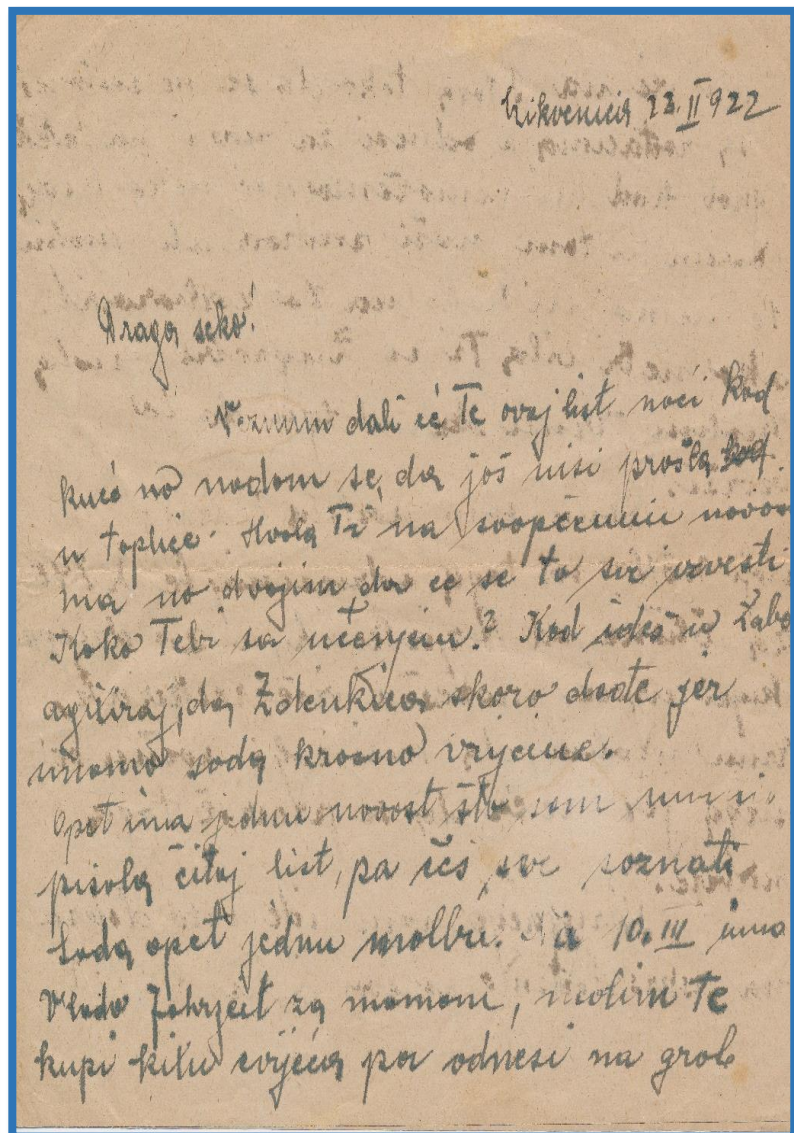 Crikvenica 23.II 922
Draga seko!
Neznam dali će Te ovaj list naći kod
kuće no nadam se, da još nisi prošla
u toplice. Hvala Ti na saopćenim novos
ma no dvojim da će se to sve izvesti
Kako Tebi sa učenjem? Kad ideš u Zabo
agitiraj, da Zdenkica skoro dođe jer
imamo sada krasno vrijeme.
Opet ima jedna novost što sam
pisala čitaj list, pa ćeš sve saznati
Sada opet jednu molbu. Na 10.III ima
Vlado Jahrzeit za mamom, molim Te
kupi kitu cvijeća pa odnesi na grob